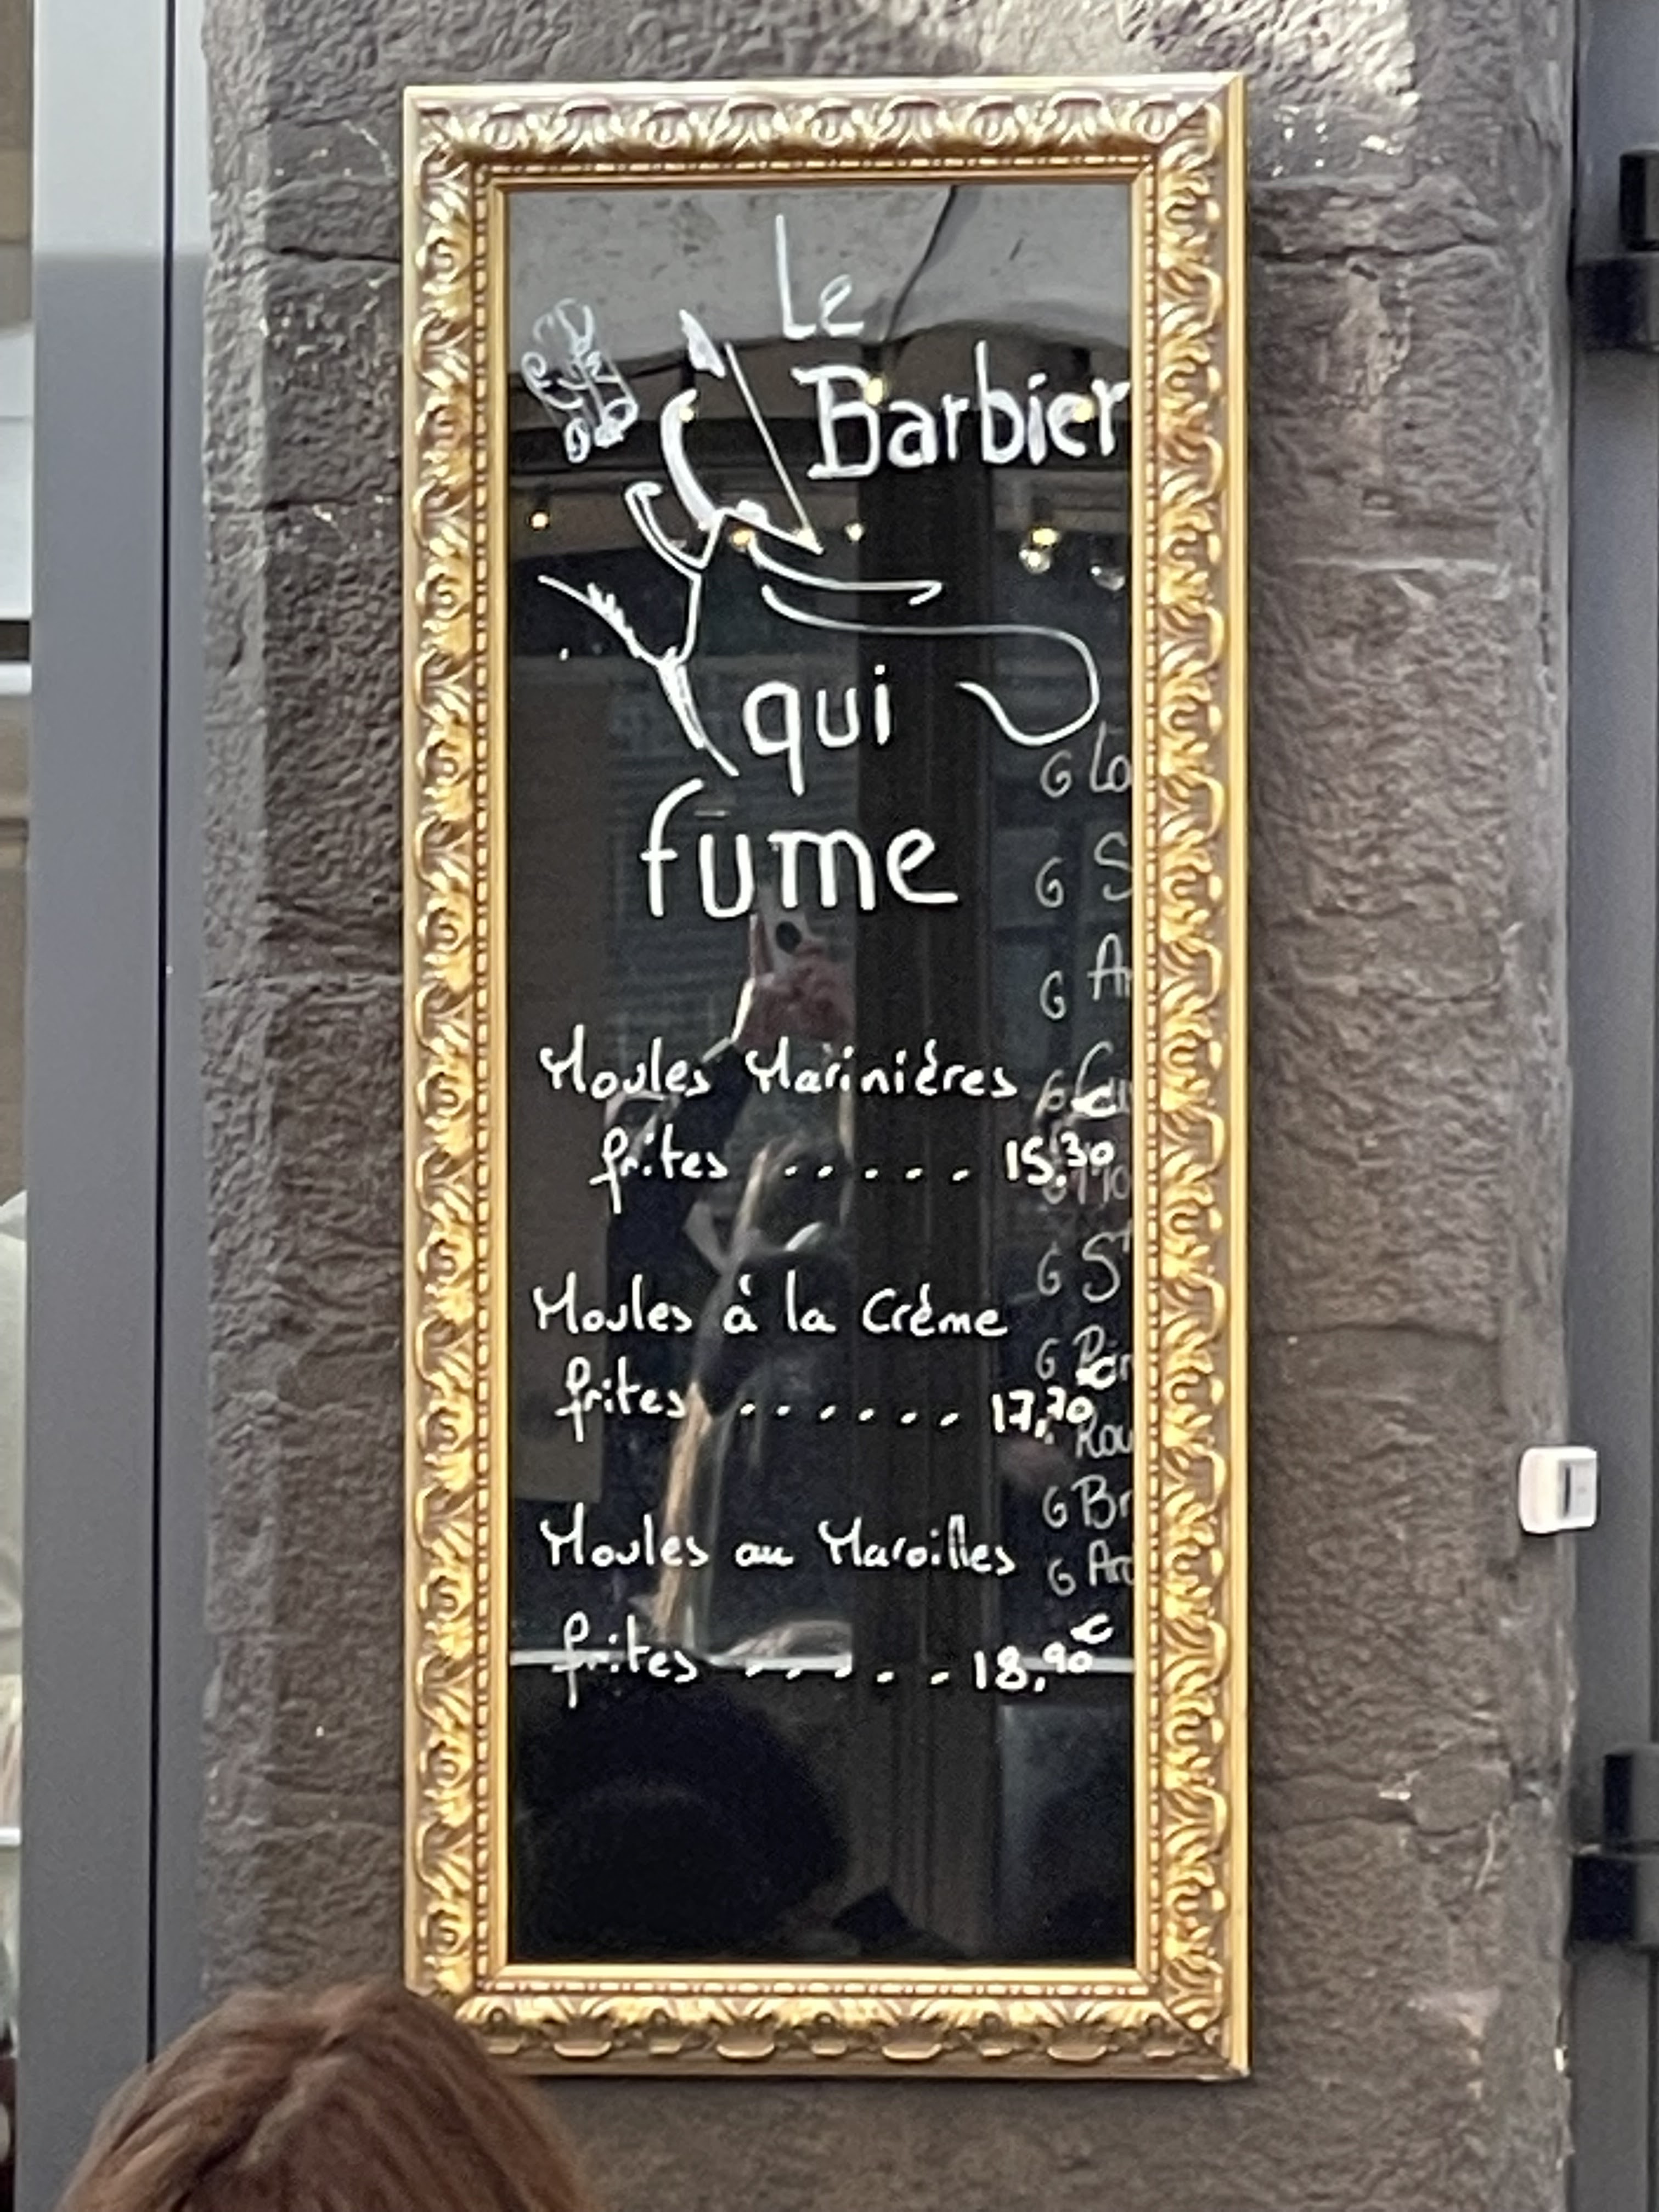 Le
Barbier
qui
fume
Moules Marinières
frites ..... 15,30€
Moules à la Crème
frites ...... 17,70€
Moules au Maroilles
frites ..... 18,90€